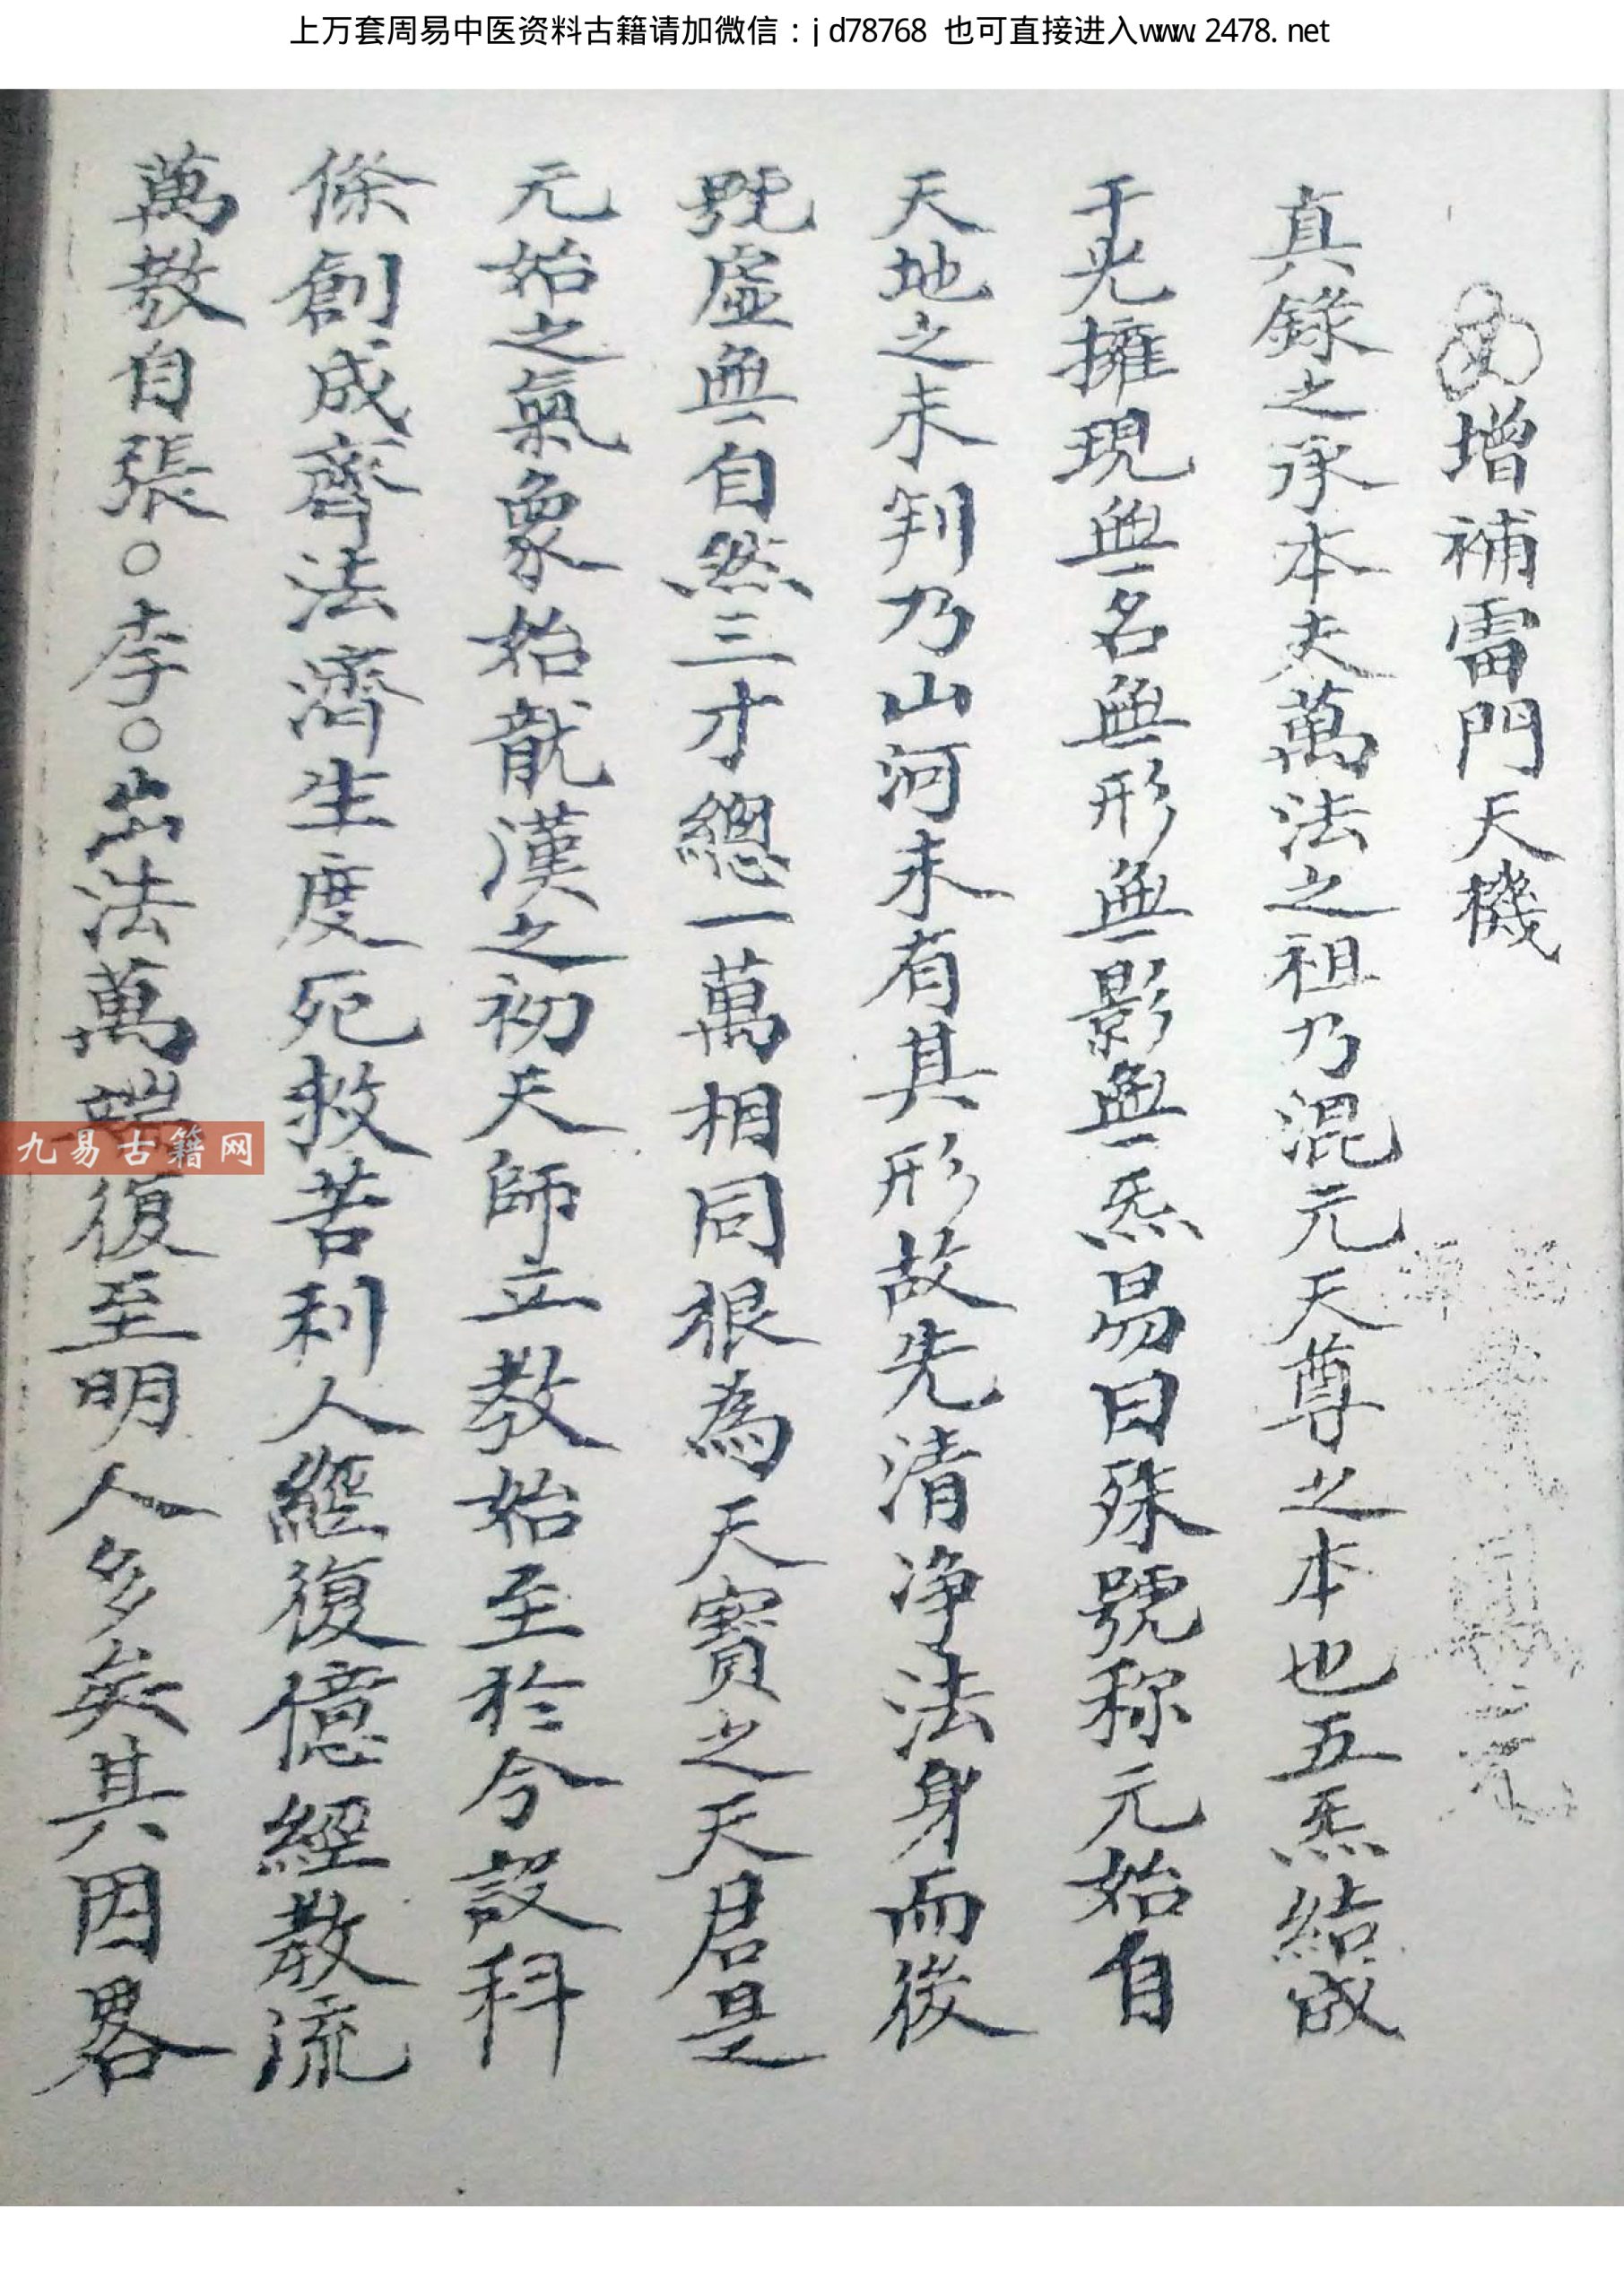 上万套周易中医资料古籍请加微信：jd78768 也可直接进入www.2478.net
增補雷門天機
真錄之承本夫萬法之祖乃混元天尊之本也五炁結成
于光擁現無名無形無影無炁昜曰殊號称元始自
天地之未判乃山河未有其形故先清净法身而後
號虛無自然三才總一萬相同根為天寶之天君是
元始之氣象始龍漢之初天師立教始至於今設科
條創成齊法濟生度死救苦利人經復億經教流
萬教自張○李○出法萬端復至明人多矣其因畧
九易古籍网